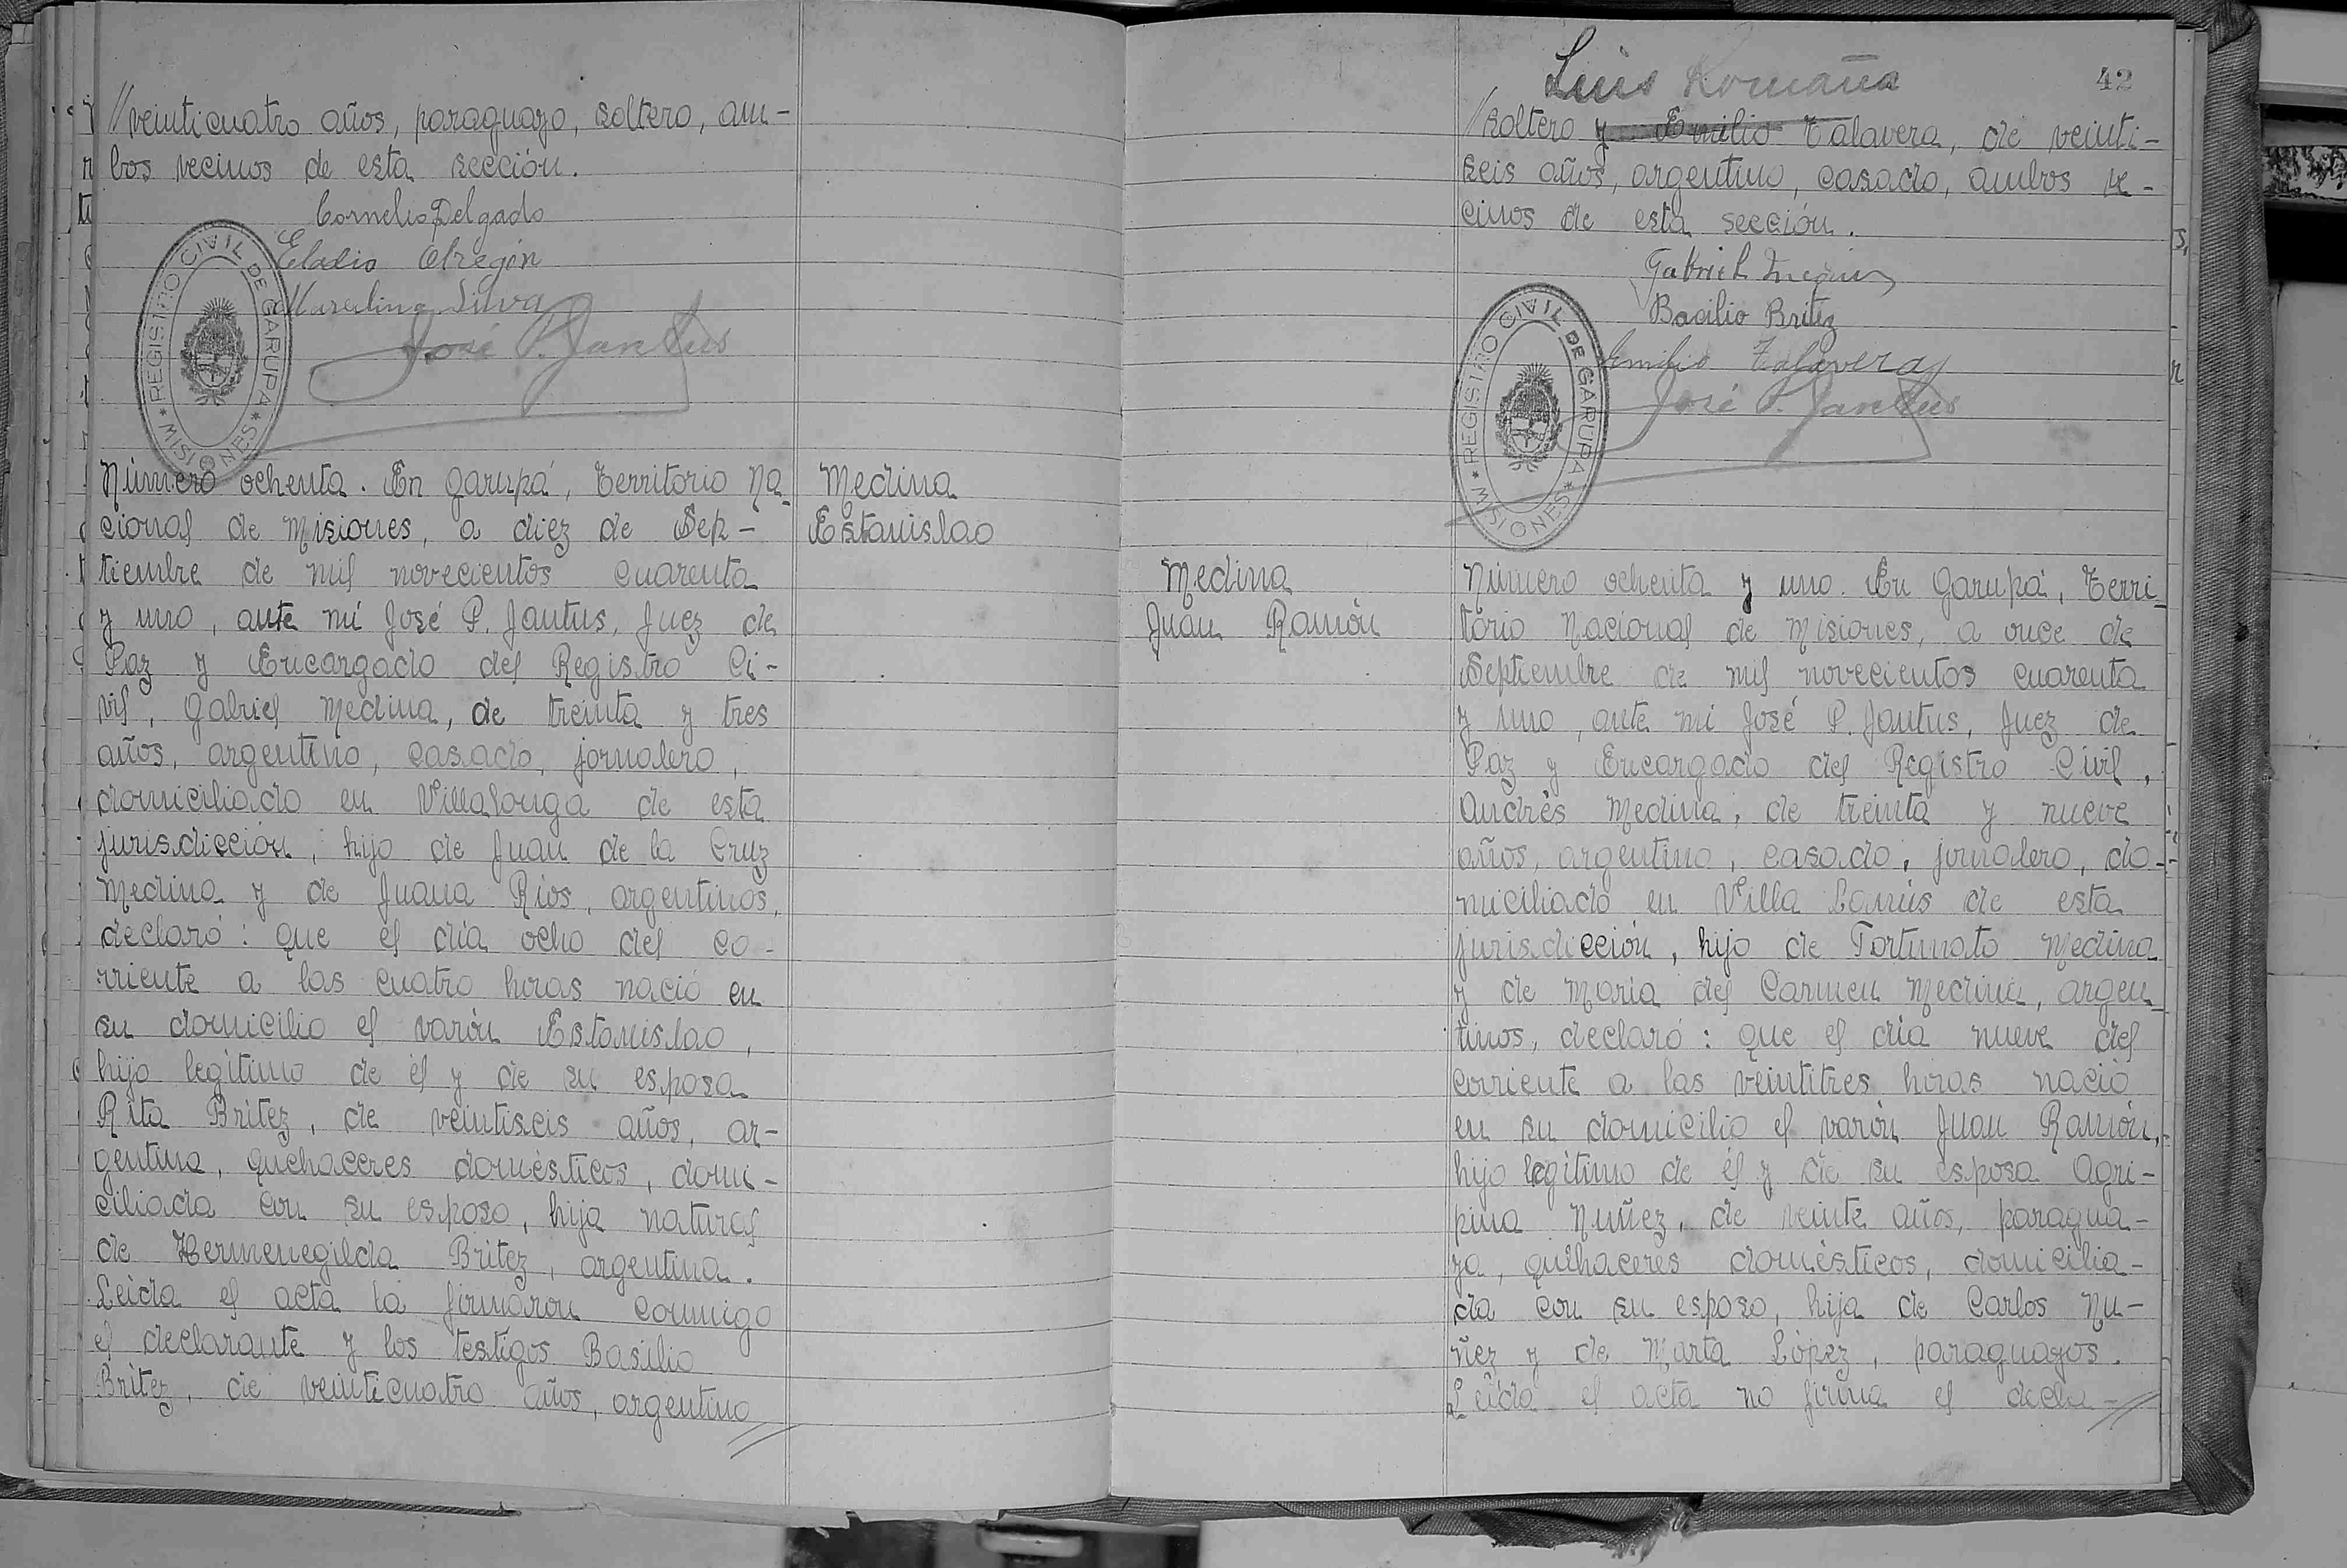 //veinticuatro años, paraguayo, soltero, am-
bos vecinos de esta sección.
Cornelio Delgado
Eladio Obregón
Marcelino Silva
José P. Jantus
REGISTRO CIVIL DE GARUPA
* MISIONES *
Número ochenta. En Garupá, Territorio Na-
cional de Misiones, a diez de Sep-
tiembre de mil novecientos cuarenta
y uno, ante mi José P. Jantus, Juez de
Paz y Encargado del Registro Ci-
vil, Gabriel Medina, de treinta y tres
años, argentino, casado, jornalero,
domiciliado en Villalonga de esta
jurisdicción, hijo de Juan de la Cruz
Medina y de Juana Rios, argentinos,
declaró: que el día ocho del co-
rriente a las cuatro horas nació en
su domicilio el varón Estanislao,
hijo legítimo de él y de su esposa
Rita Britez, de veintiseis años, ar-
gentina, quehaceres domésticos, domi-
ciliada con su esposo, hija natural
de Hermenegilda Britez, argentina.
Leida el acta la firmaron conmigo
el declarante y los testigos Basilio
Britez, de veinticuatro años, argentino//
Medina
Estanislao
Luis Romaña
42
//soltero y Emilio Talavera, de veinti-
seis años, argentino, casado, ambos ve-
cinos de esta sección.
Gabriel
Basilio Britez
Emilio Talavera
José P. Jantus
REGISTRO CIVIL DE GARUPA
* MISIONES *
Medina
Juan Ramón
Número ochenta y uno. En Garupá, Terri-
torio Nacional de Misiones, a once de
Septiembre de mil novecientos cuarenta
y uno, ante mi José P. Jantus, Juez de
Paz y Encargado del Registro Civil,
Andrés Medina, de treinta y nueve
años, argentino, casado, jornalero, do-
miciliado en Villa Lanús de esta
jurisdicción, hijo de Fortunato Medina
y de Maria del Carmen Medina, argen-
tinos, declaró: que el día nueve del
corriente a las veintitres horas nació
en su domicilio el varón Juan Ramón,
hijo legítimo de él y de su esposa Agri-
pina Nuñez, de veinte años, paragua-
ya, quehaceres domésticos, domicilia-
da con su esposo, hija de Carlos Nu-
ñez y de Marta López, paraguayos.
Leida el acta no firma el decla-//